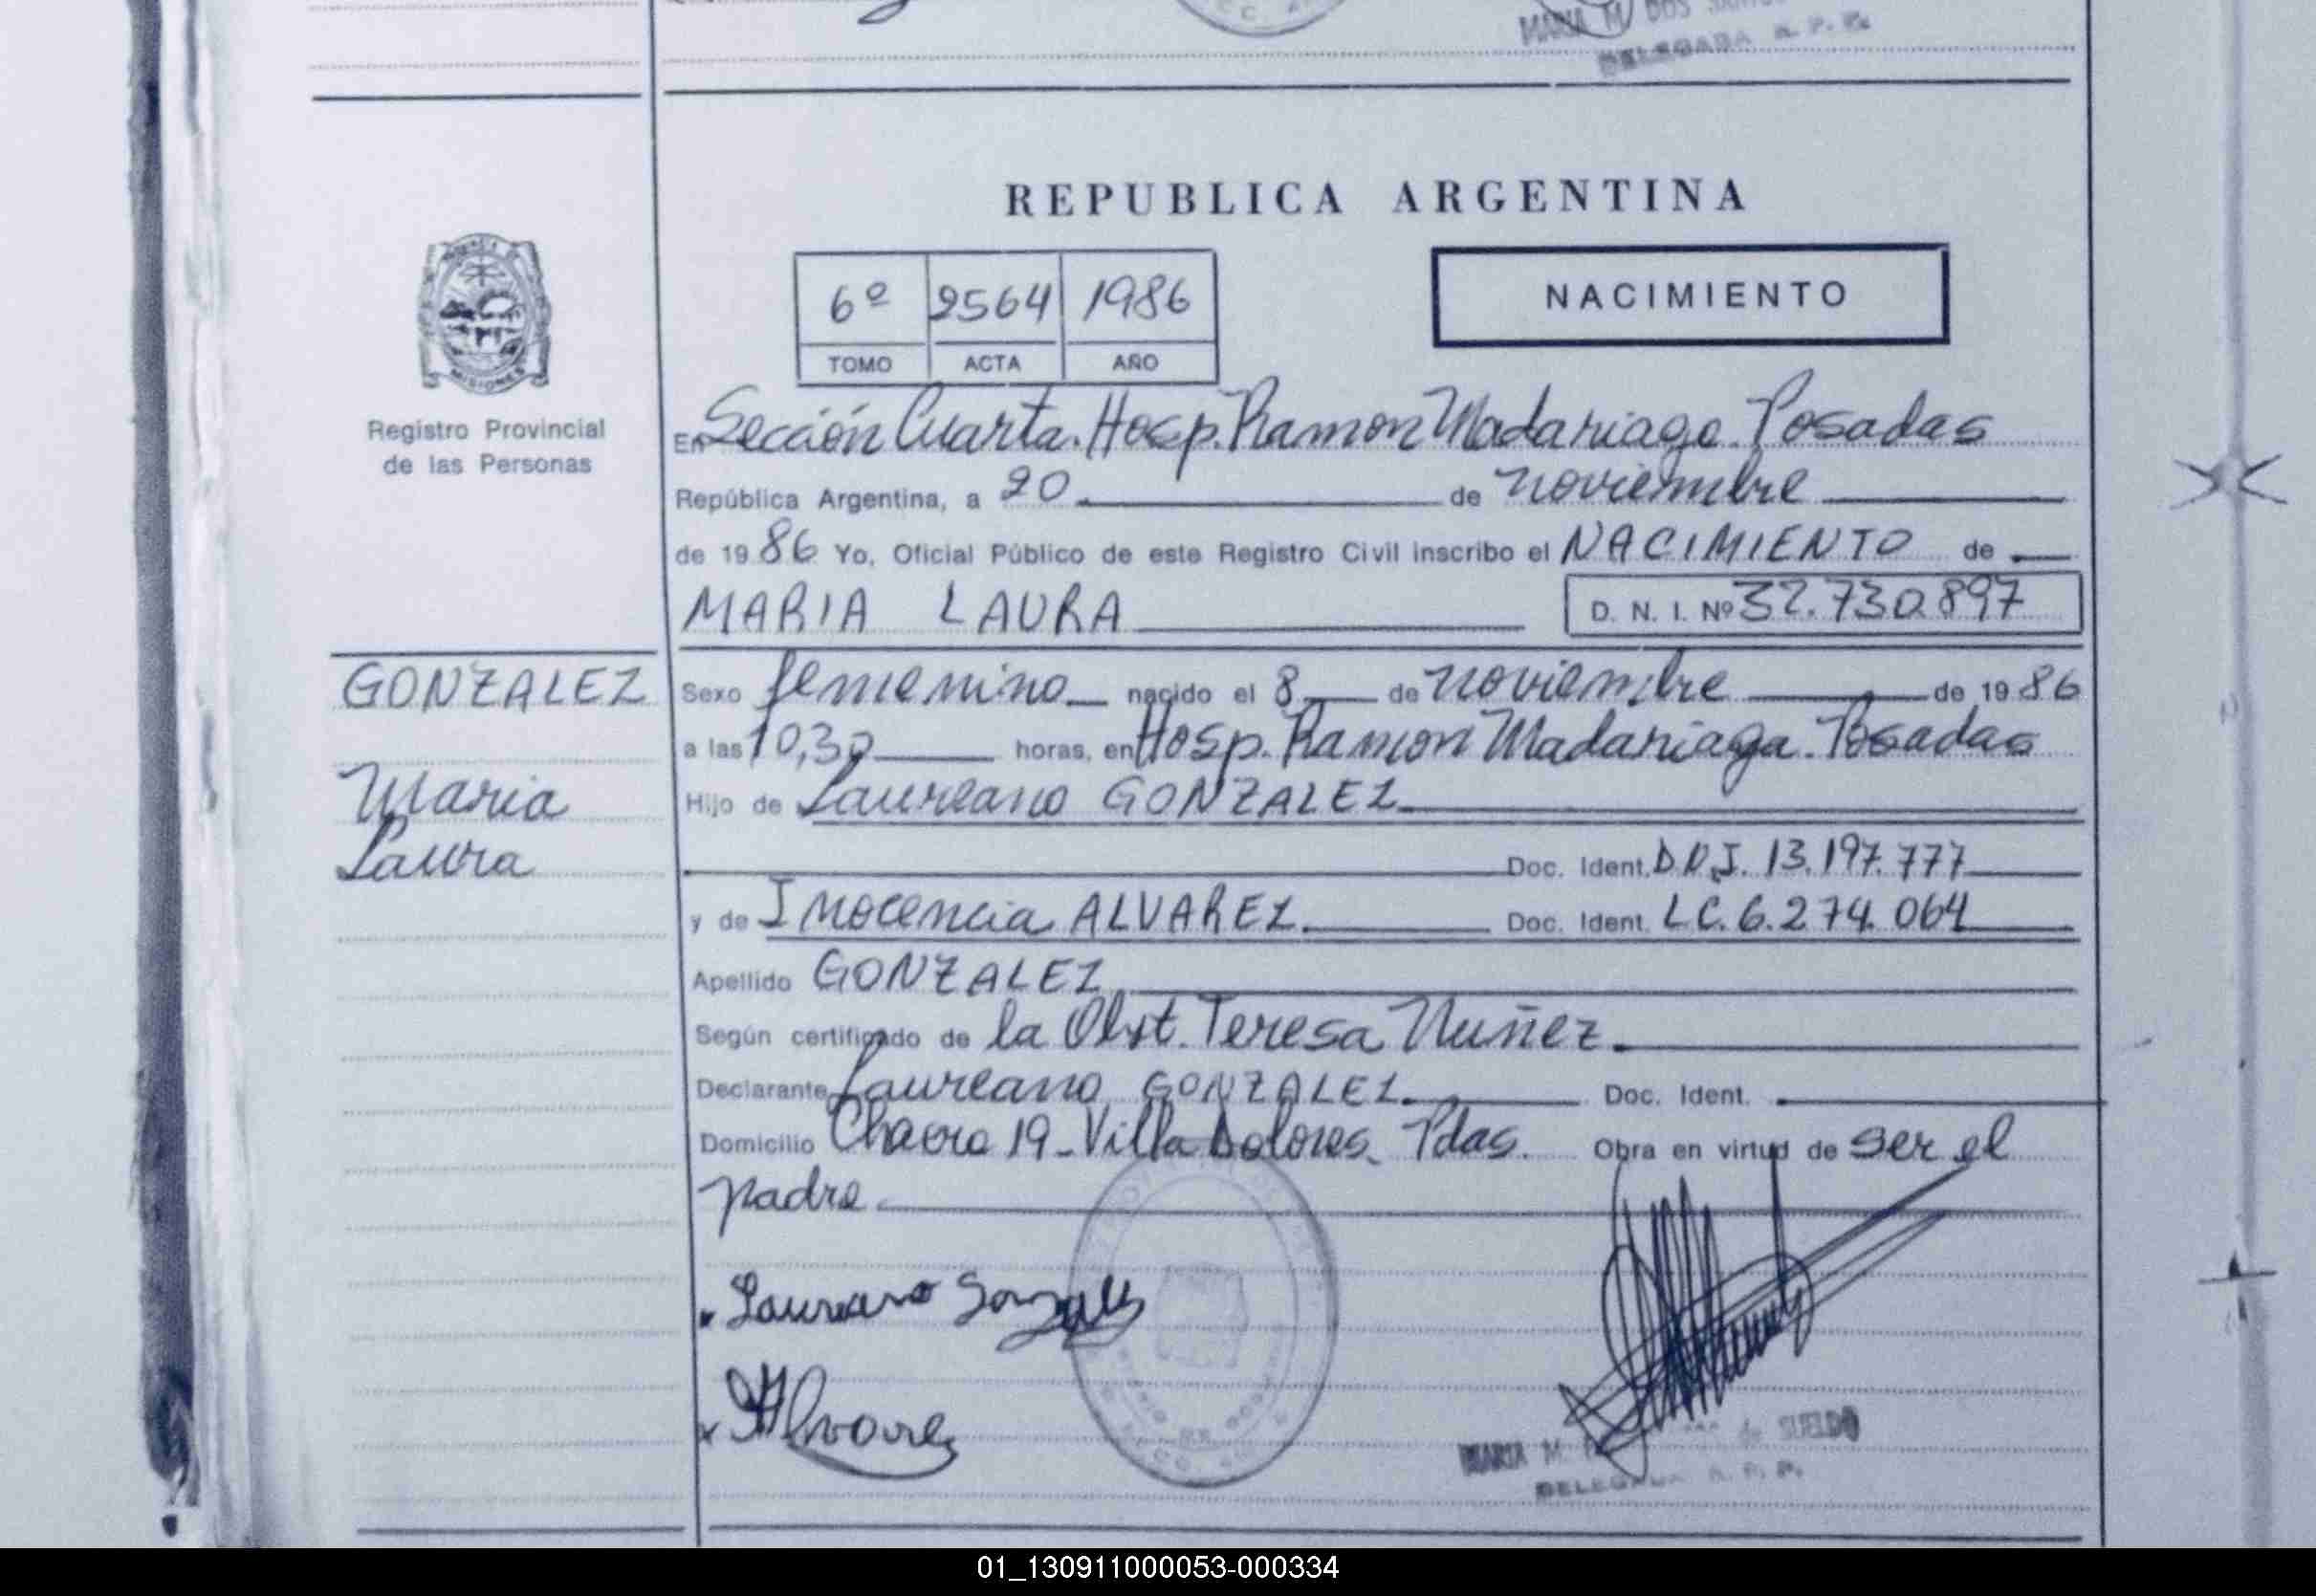 MARIA M. DOS
DELEGADA R. P. P.
REPUBLICA ARGENTINA
6º 2564 1986
TOMO ACTA AÑO
NACIMIENTO
MISIONES
Registro Provincial
de las Personas
En Sección Cuarta. Hosp. Ramon Madariaga. Posadas
República Argentina, a 20 de noviembre
de 1986 Yo, Oficial Público de este Registro Civil inscribo el NACIMIENTO de
MARIA LAURA D. N. I. Nº 32.730.897
GONZALEZ
Maria
Laura
Sexo femenino nacido el 8 de noviembre de 1986
a las 10,30 horas, en Hosp. Ramon Madariaga. Posadas
Hijo de Laureano GONZALEZ
Doc. Ident. D.N.I. 13.197.777
y de Inocencia ALVAREZ Doc. Ident. LC. 6.274.064
Apellido GONZALEZ
Según certificado de la Obst. Teresa Nuñez
Declarante Laureano GONZALEZ Doc. Ident.
Domicilio Chacra 19 - Villa Dolores. Pdas. Obra en virtud de ser el
padre
Laureano Gonzalez
Alvarez
MARIA M. de SUELDO
DELEGADA R. P. P.
01_130911000053-000334